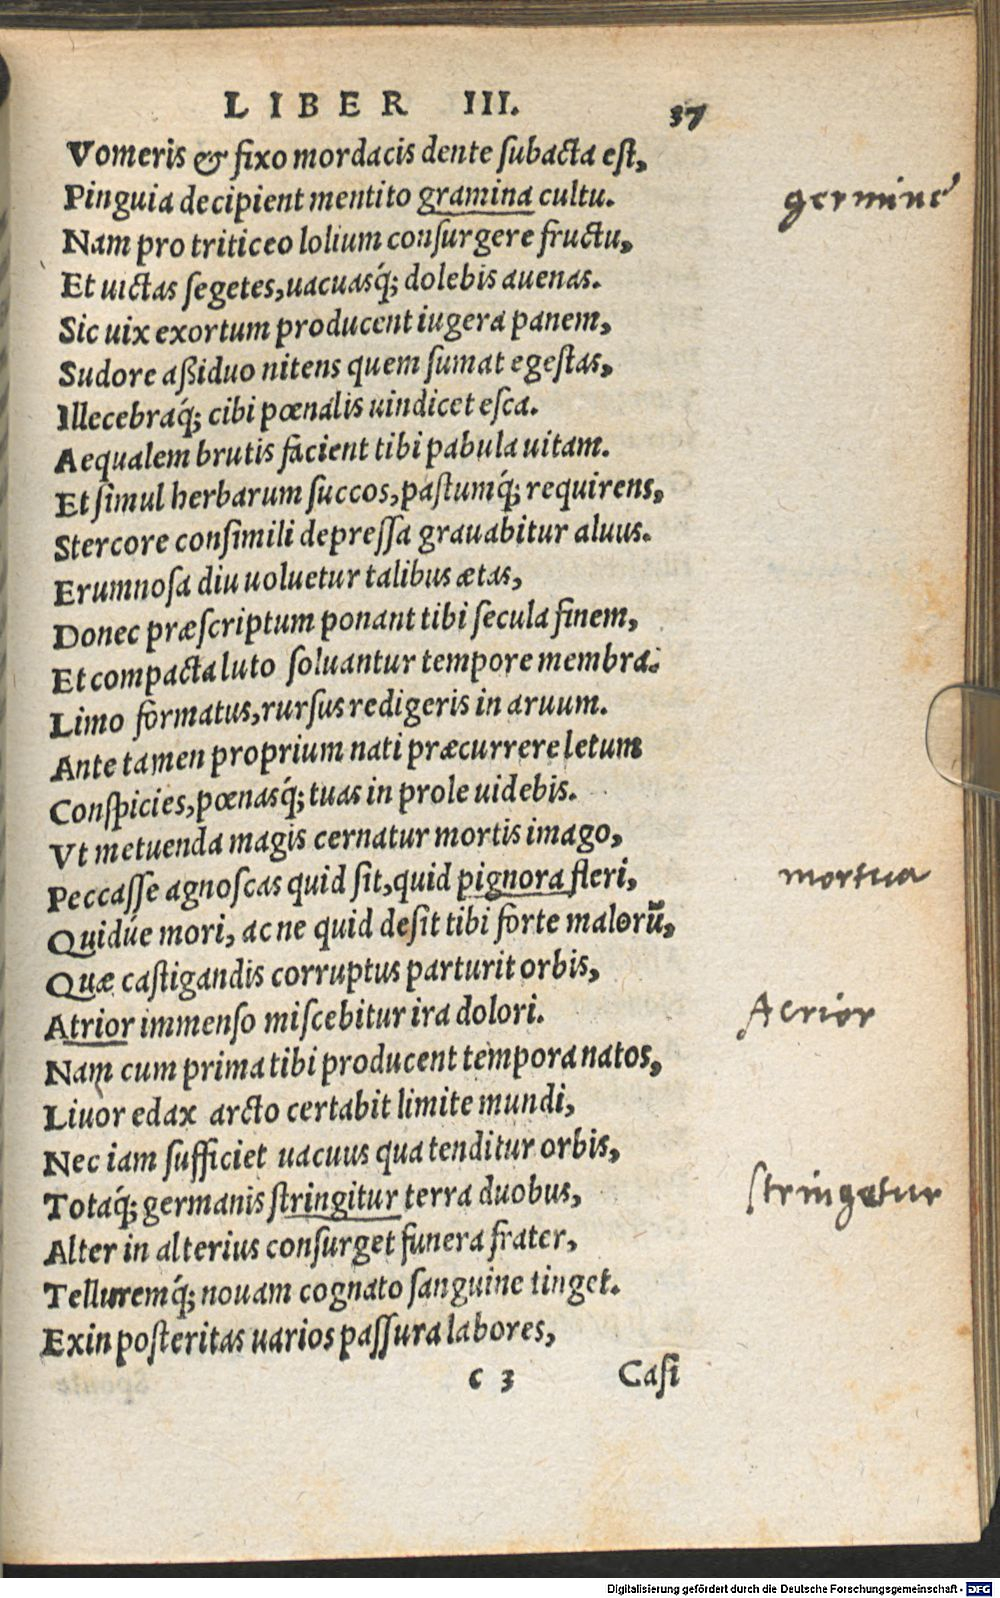 LIBER III. 37
Vomeris & fixo mordacis dente ſubacta eſt,
Pinguia decipient mentito gramina cultu. germine
Nam pro triticeo lolium conſurgere fructu,
Et uictas ſegetes, uacuasq́; dolebis auenas.
Sic uix exortum producent iugera panem,
Sudore aßiduo nitens quem ſumat egeſtas,
Illecebraq́; cibi pœnalis uindicet eſca.
Aequalem brutis facient tibi pabula uitam.
Et ſimul herbarum ſuccos, paſtumq́; requirens,
Stercore conſimili depreſſa grauabitur aluus.
Erumnoſa diu uoluetur talibus ætas,
Donec præſcriptum ponant tibi ſecula finem,
Et compacta luto ſoluantur tempore membra.
Limo formatus, rurſus redigeris in aruum.
Ante tamen proprium nati præcurrere letum
Conſpicies, pœnasq́; tuas in prole uidebis.
Vt metuenda magis cernatur mortis imago,
Peccaſſe agnoſcas quid ſit, quid pignora fleri, mortua
Quidúe mori, ac ne quid deſit tibi forte malorū,
Quæ caſtigandis corruptus parturit orbis,
Atrior immenſo miſcebitur ira dolori. Acrior
Nam cum prima tibi producent tempora natos,
Liuor edax arcto certabit limite mundi,
Nec iam ſufficiet uacuus qua tenditur orbis,
Totaq́; germanis ſtringitur terra duobus, stringetur
Alter in alterius conſurget funera frater,
Telluremq́; nouam cognato ſanguine tinget.
Exin poſteritas uarios paſſura labores,
c 3 Caſi
Digitalisierung gefördert durch die Deutsche Forschungsgemeinschaft - DFG